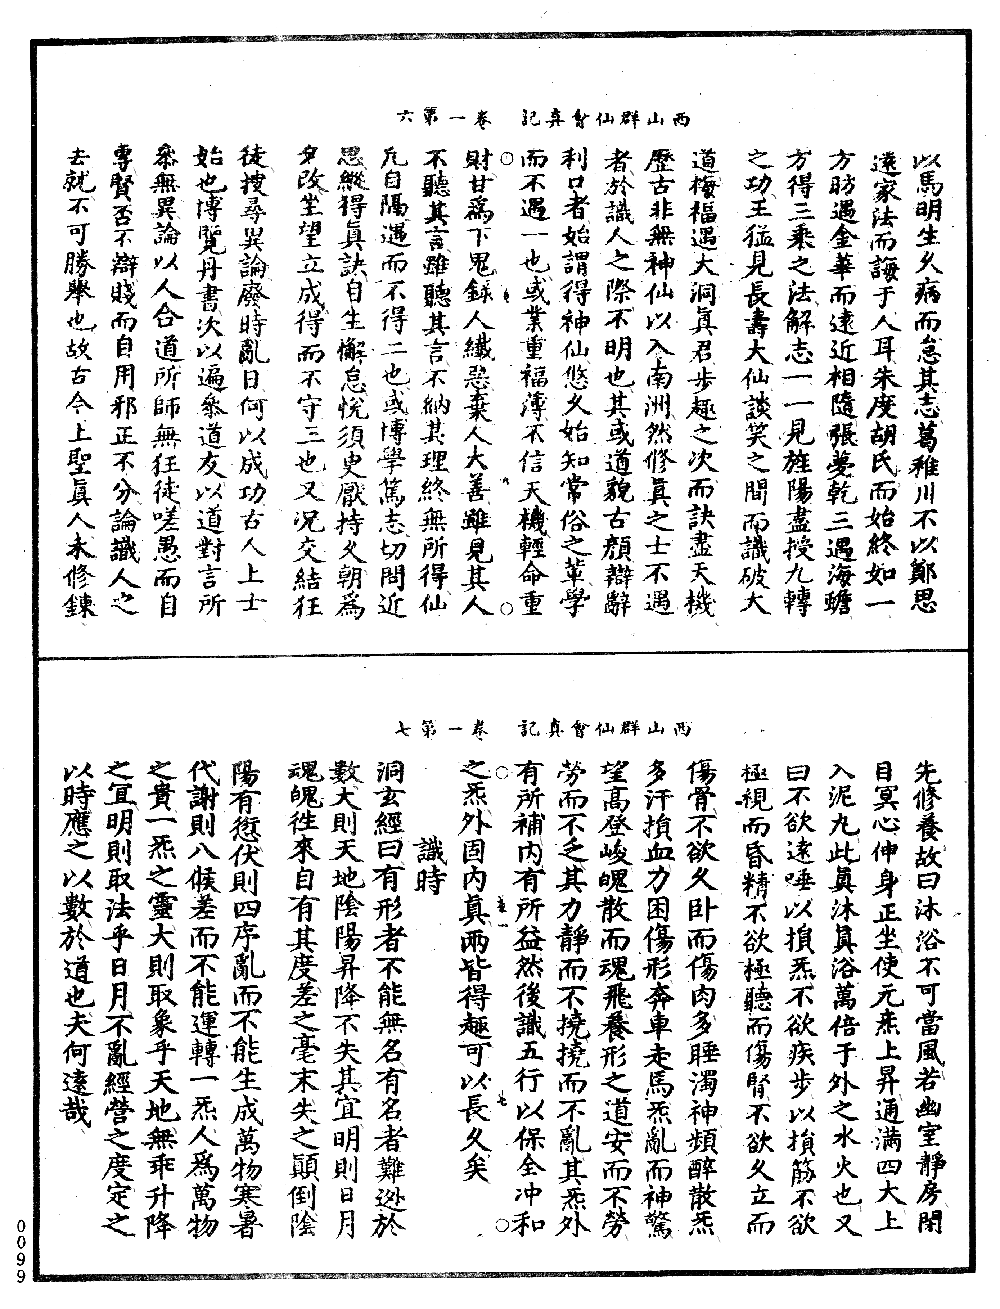 西山群仙會真記　卷一第六
以馬明生久病而怠其志葛稚川不以鄭思
遠家法而誨于人耳朱度胡氏而始終如一
方昉遇金華而遠近相隨張夢乾三遇海蟾
方得三乘之法解志一一見旌陽盡授九轉
之功王猛見長壽大仙談笑之間而識破大
道梅福遇大洞真君步趨之次而訣盡天機
歷古非無神仙以入南洲然修真之士不遇
者於識人之際不明也其或道貌古顏辯辭
利口者始謂得神仙悠久始知常俗之輩學
而不遇一也或業重福薄不信天機輕命重
財甘為下鬼錄人纖惡棄人大善雖見其人
不聽其言雖聽其言不納其理終無所得仙
凡自隔遇而不得二也或博學篤志切問近
思縱得真訣自生懈怠悅須臾厭持久朝為
夕改坐望立成得而不守三也又況交結狂
徒搜尋異論廢時亂日何以成功古人上士
始也博覽丹書次以遍叅道友以道對言所
叅無異論以人合道所師無狂徒嗟愚而自
專賢否不辯賤而自用邪正不分論識人之
去就不可勝舉也故古今上聖真人未修鍊
西山群仙會真記　卷一第七
先修養故曰沐浴不可當風若幽室靜房閉
目冥心伸身正坐使元炁上昇通滿四大上
入泥丸此真沐真浴萬倍于外之水火也又
曰不欲遠唾以損炁不欲疾步以損筋不欲
極視而昏精不欲極聽而傷腎不欲久立而
傷骨不欲久卧而傷肉多睡濁神頻醉散炁
多汗損血力困傷形奔車走馬炁亂而神驚
望高登峻魄散而魂飛養形之道安而不勞
勞而不乏其力靜而不撓撓而不亂其炁外
有所補內有所益然後識五行以保全冲和
之炁外固內真兩皆得趣可以長久矣
識時
洞玄經曰有形者不能無名有名者難逃於
數大則天地陰陽昇降不失其宜明則日月
魂魄徃來自有其度差之毫末失之顛倒陰
陽有愆伏則四序亂而不能生成萬物寒暑
代謝則八候差而不能運轉一炁人為萬物
之貴一炁之靈大則取象乎天地無乖升降
之宜明則取法乎日月不亂經營之度定之
以時應之以數於道也夫何遠哉
0099